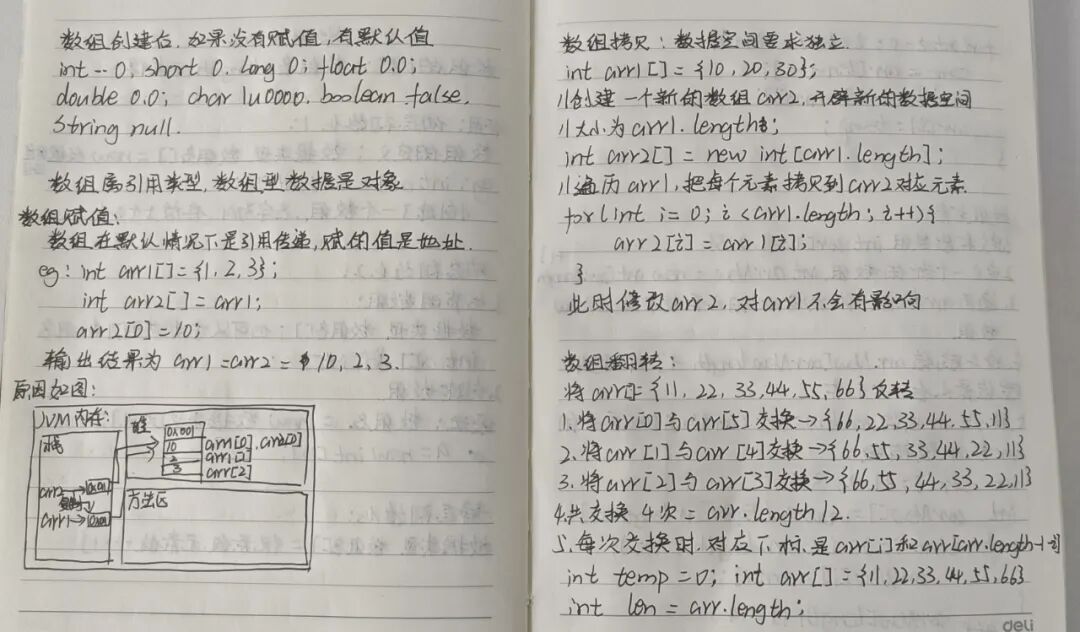 数组创建后，如果没有赋值，有默认值
int -- 0; short 0, long 0; float 0.0;
double 0.0; char \u0000, boolean false,
String null.
数组属引用类型，数组型数据是对象
数组赋值：
数组在默认情况下是引用传递，赋的值是地址.
eg: int arr1[] = {1, 2, 3};
int arr2[] = arr1;
arr2[0] = 10;
输出结果为 arr1 = arr2 = 10, 2, 3.
原因如图：
JVM内存:
栈
堆
0x001
10
2
3
arr1[0], arr2[0]
arr1[1]
arr[2]
arr2 → 0x001
arr1 → 0x001
方法区
数组拷贝：数据空间要求独立.
int arr1[] = {10, 20, 30};
//创建一个新的数组arr2, 开辟新的数据空间
//大小为arr1.length;
int arr2[] = new int[arr1.length];
//遍历arr1, 把每个元素拷贝到arr2对应元素
for(int i=0; i<arr1.length; i++){
arr2[i] = arr1[i];
}
此时修改arr2, 对arr1不会有影响
数组翻转：
将arr[]= {11, 22, 33, 44, 55, 66} 反转
1. 将arr[0]与arr[5]交换→{66, 22, 33, 44, 55, 11}
2. 将arr[1]与arr[4]交换→{66, 55, 33, 44, 22, 11}
3. 将arr[2]与arr[3]交换→{66, 55, 44, 33, 22, 11}
4. 共交换 4次 = arr.length/2.
5. 每次交换时, 对应下标, 是arr[i]和arr[arr.length-1-i]
int temp = 0; int arr[] = {11, 22, 33, 44, 55, 66}
int len = arr.length;
deli